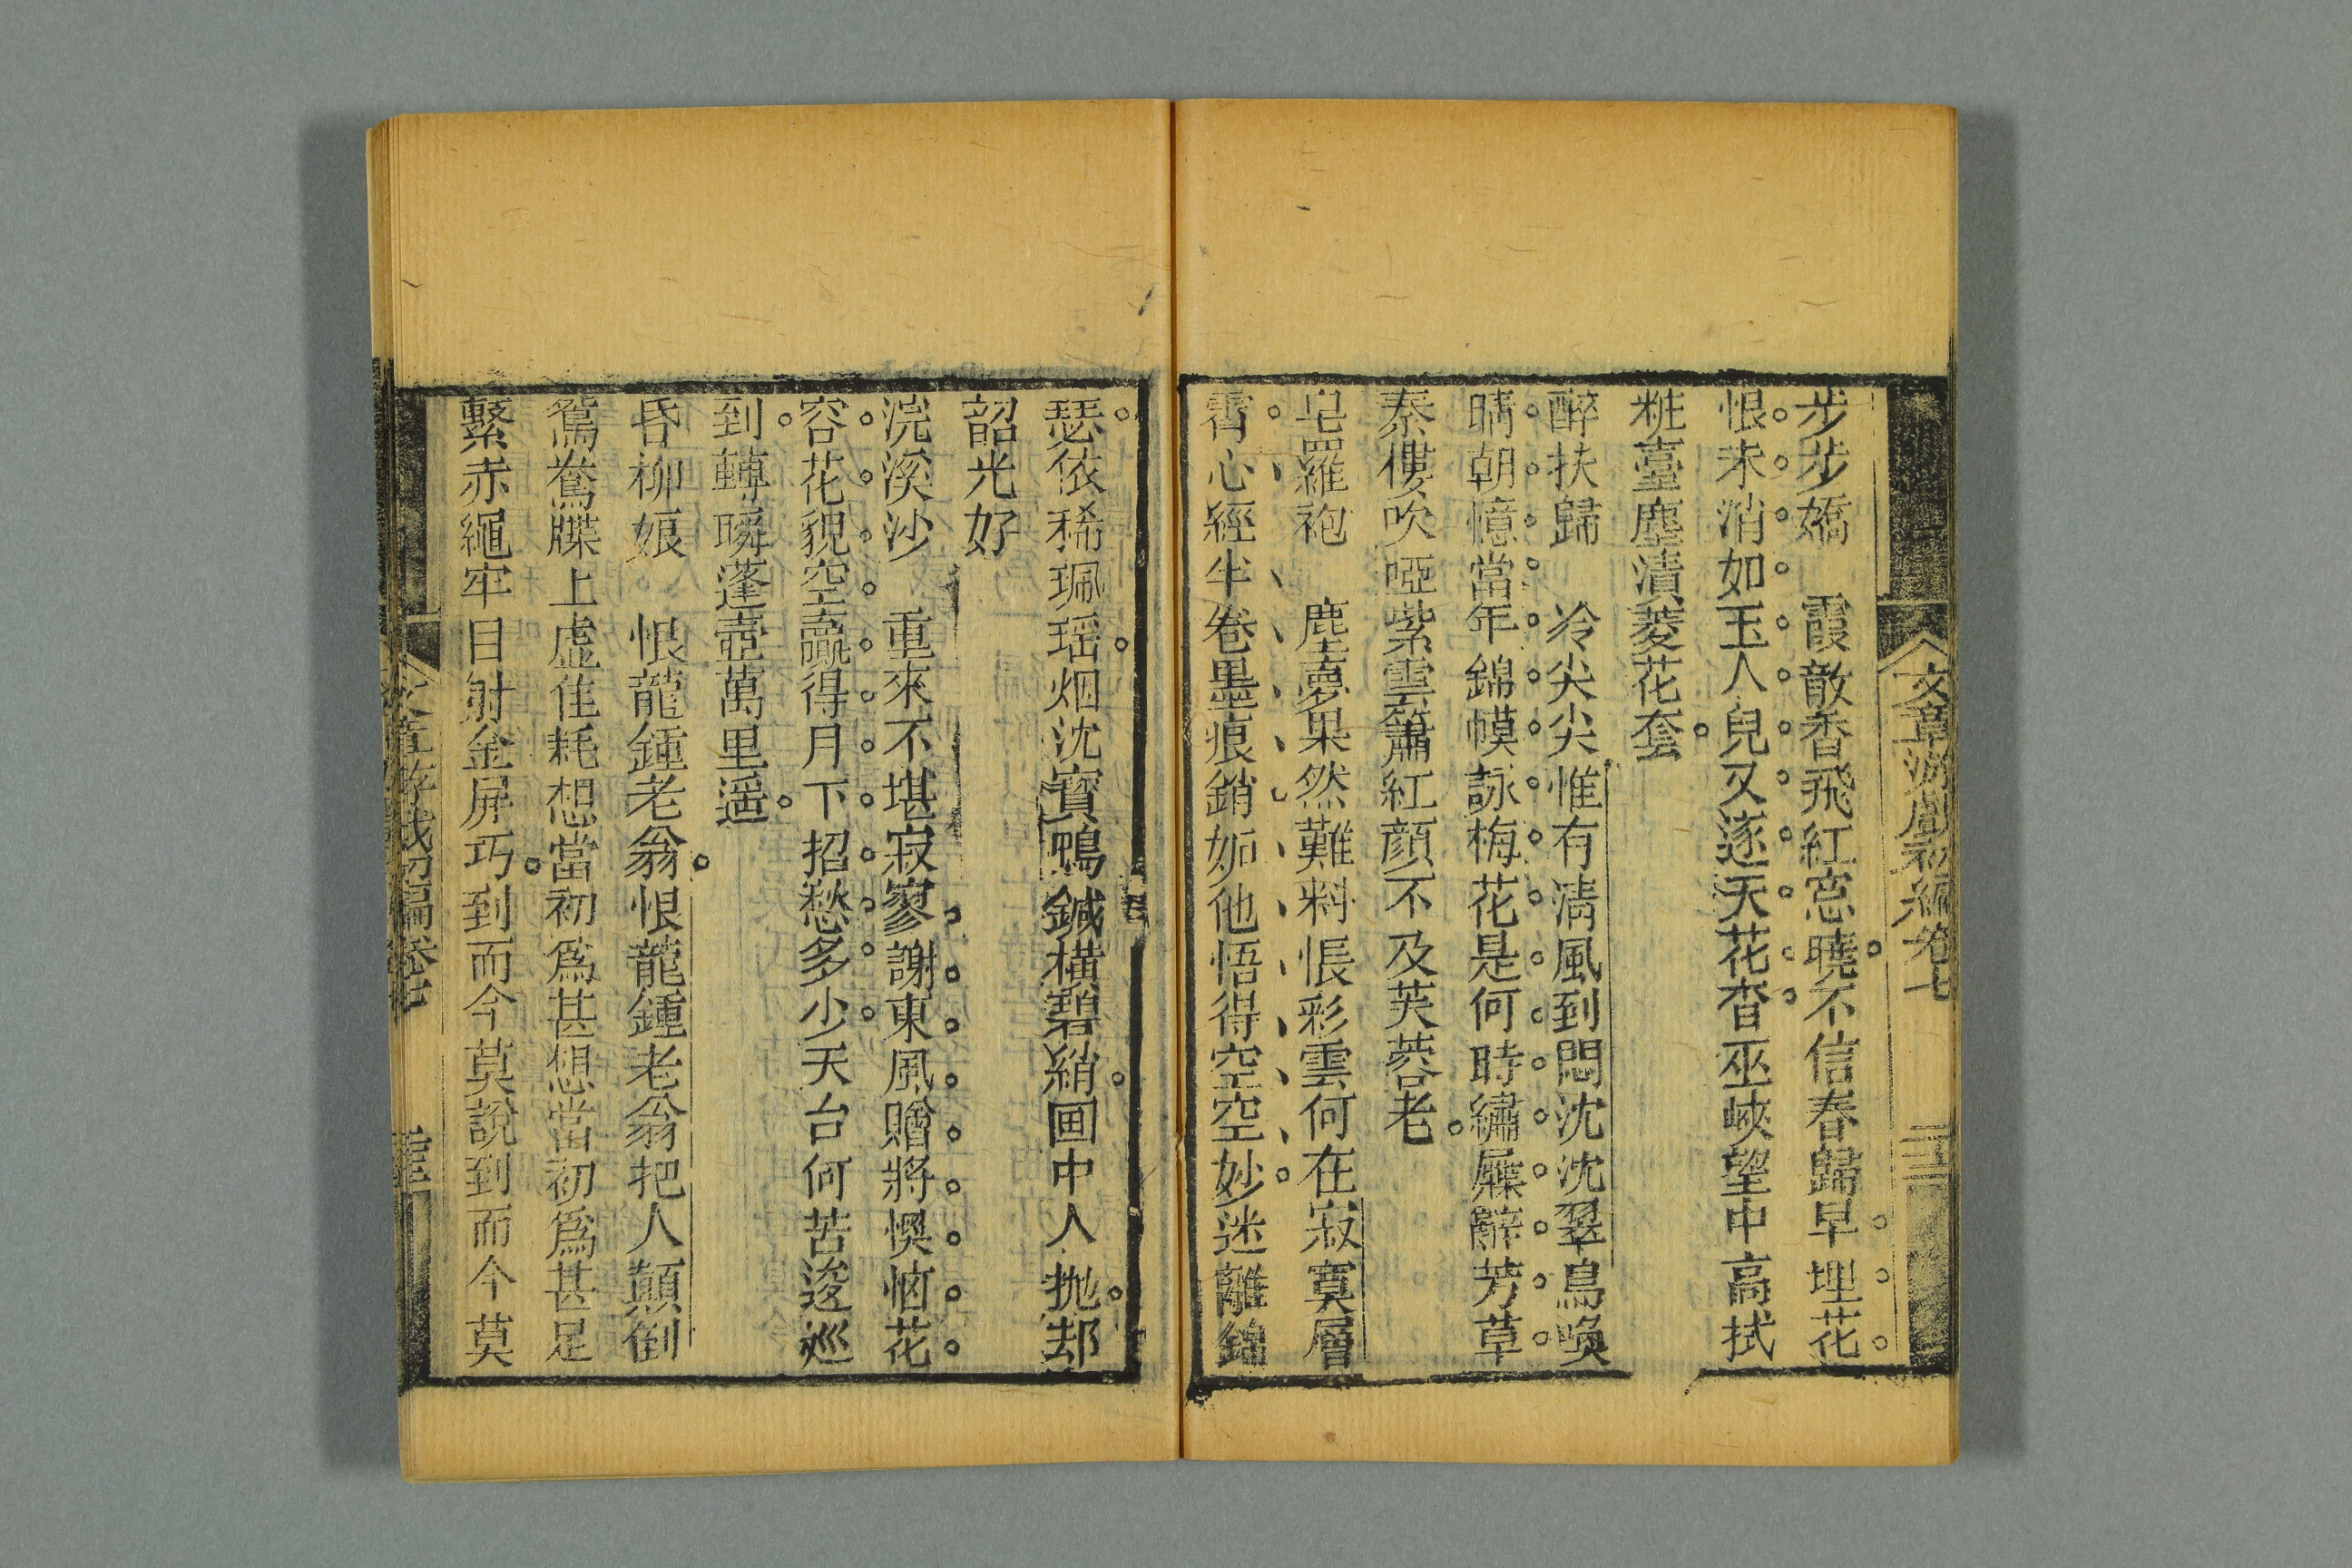 文章游戲初編卷七
步步嬌　霞散香飛紅窓曉不信春歸早埋花
恨未消如玉人兒又逐天花杳巫峽望中高拭
粧臺塵漬菱花套
醉扶歸　冷尖尖惟有淸風到悶沈沈翠鳥喚
晴朝憶當年錦幙詠梅花是何時繡屧辭芳草
秦樓吹啞紫雲簫紅顔不及芙蓉老
皂羅袍　塵夢果然難料悵彩雲何在寂寞層
霄心經半卷墨痕銷妬他悟得空空妙迷離錦
瑟依稀珮瑶烟沈寳鴨鍼橫碧綃画中人抛却
韶光好
浣溪沙　重來不堪寂寥謝東風贈將懊恼花
容花貌空贏得月下招愁多少天台何苦逡巡
到轉瞬蓬壺萬里遥
昏柳娘　恨龍鍾老翁恨龍鍾老翁把人顛倒
鴛鴦牒上虚佳耗想當初爲甚想當初爲甚足
繫赤繩牢目射金屏巧到而今莫說到而今莫
文章游戲初編卷七